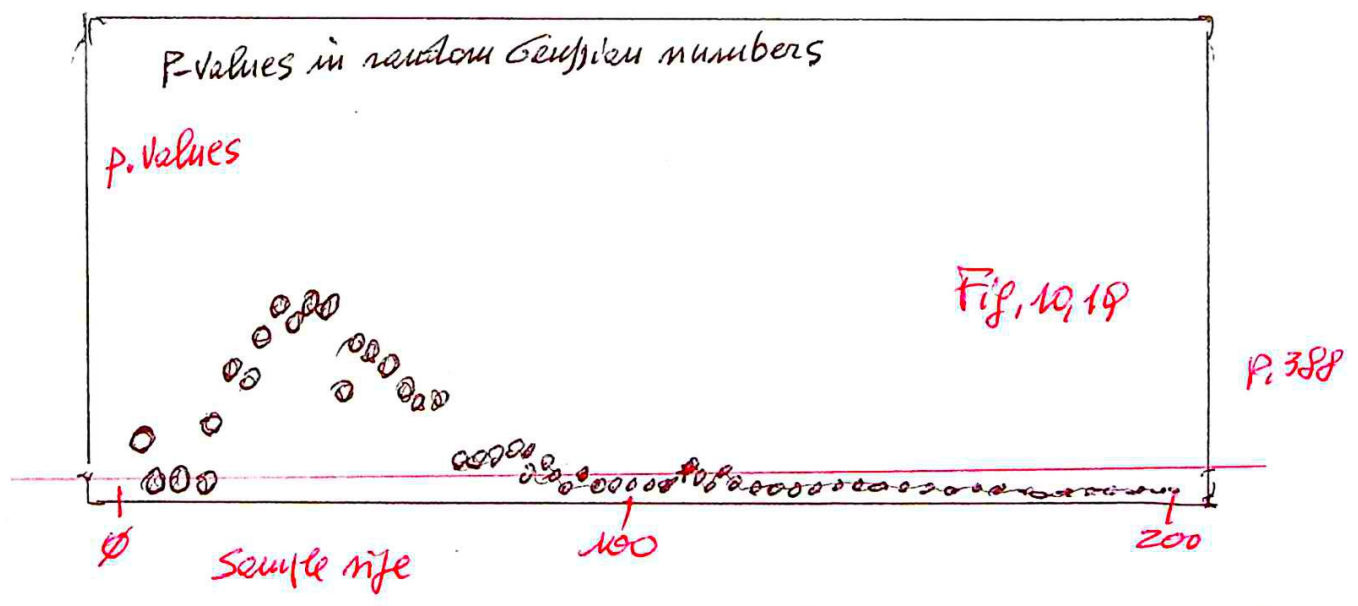 P-Values in random Gaussian numbers
p. Values
Fig, 10,19
p. 388
Ø
100
200
Sample size